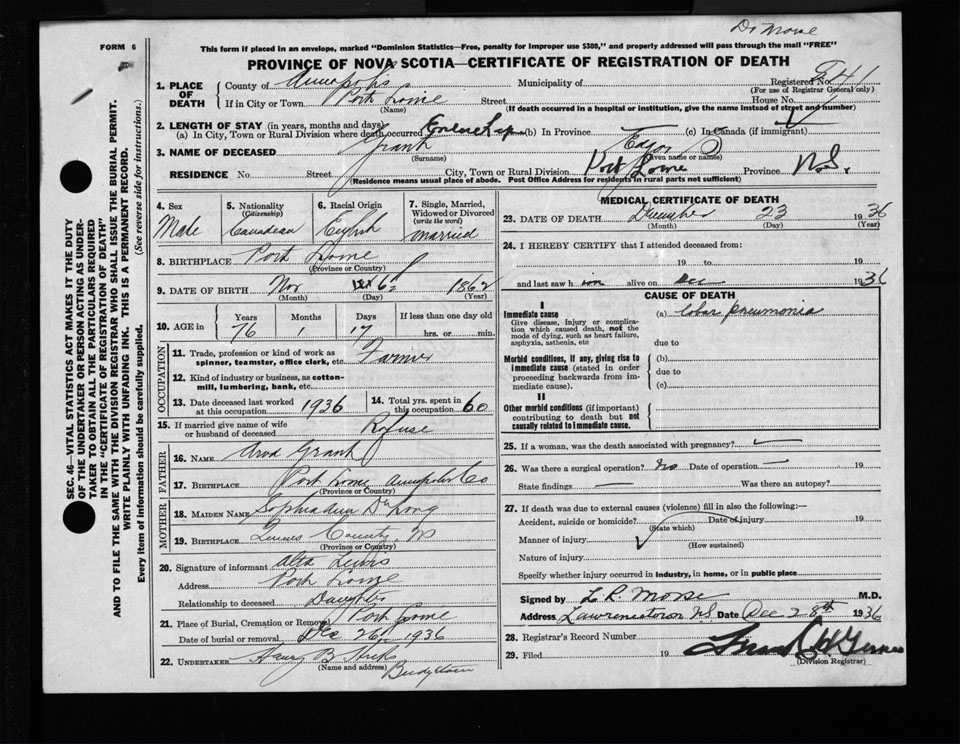 Dr Morse
FORM 6
This form if placed in an envelope, marked "Dominion Statistics—Free, penalty for improper use $300," and properly addressed will pass through the mail "FREE"
PROVINCE OF NOVA SCOTIA—CERTIFICATE OF REGISTRATION OF DEATH
1. PLACE OF DEATH
County of Annapolis Municipality of Registered No. 241
(For use of Registrar General only)
If in City or Town Port Lorne Street House No.
(Name) (If death occurred in a hospital or institution, give the name instead of street and number)
2. LENGTH OF STAY (in years, months and days)
(a) In City, Town or Rural Division where death occurred Entire Life (b) In Province (c) In Canada (if immigrant)
3. NAME OF DECEASED Grant Edgar
(Surname) (Given name or names)
RESIDENCE No. Street City, Town or Rural Division Port Lorne Province N.S.
(Residence means usual place of abode. Post Office Address for residents in rural parts not sufficient)
4. Sex
Male
5. Nationality
(Citizenship)
Canadian
6. Racial Origin
English
7. Single, Married, Widowed or Divorced
(write the word)
Married
8. BIRTHPLACE Port Lorne
(Province or Country)
9. DATE OF BIRTH Nov 6 1862
(Month) (Day) (Year)
10. AGE in
Years Months Days If less than one day old
76 1 17 hrs. or min.
OCCUPATION
11. Trade, profession or kind of work as spinner, teamster, office clerk, etc. Farmer
12. Kind of industry or business, as cotton-mill, lumbering, bank, etc.
13. Date deceased last worked at this occupation 1936
14. Total yrs. spent in this occupation 60
15. If married give name of wife or husband of deceased Refuse
FATHER
16. NAME Grant
17. BIRTHPLACE Port Lorne Annapolis Co
(Province or Country)
MOTHER
18. MAIDEN NAME
19. BIRTHPLACE Queens County, NS
(Province or Country)
20. Signature of informant Alta Lewis
Address Port Lorne
Relationship to deceased Daughter
21. Place of Burial, Cremation or Removal Port Lorne
Date of burial or removal Dec 26, 1936
22. UNDERTAKER Harry B Hicks
(Name and address) Bridgetown
MEDICAL CERTIFICATE OF DEATH
23. DATE OF DEATH December 23 1936
(Month) (Day) (Year)
24. I HEREBY CERTIFY that I attended deceased from:
19 to 19
and last saw h im alive on Dec 1936
CAUSE OF DEATH
I
Immediate cause
Give disease, injury or complication which caused death, not the mode of dying, such as heart failure, asphyxia, asthenia, etc
(a) lobar pneumonia
due to
Morbid conditions, if any, giving rise to immediate cause (stated in order proceeding backwards from immediate cause).
(b)
due to
(c)
II
Other morbid conditions (if important) contributing to death but not causally related to immediate cause.
25. If a woman, was the death associated with pregnancy?
26. Was there a surgical operation? No Date of operation 19
State findings Was there an autopsy?
27. If death was due to external causes (violence) fill in also the following:—
Accident, suicide or homicide? Date of injury 19
(State which)
Manner of injury
(How sustained)
Nature of injury
Specify whether injury occurred in industry, in home, or in public place
Signed by L. R. Morse M.D.
Address Lawrencetown N.S. Date Dec 28th 1936
28. Registrar's Record Number
29. Filed 19
(Division Registrar)
SEC. 46—VITAL STATISTICS ACT MAKES IT THE DUTY
OF THE UNDERTAKER OR PERSON ACTING AS UNDERTAKER TO OBTAIN ALL THE PARTICULARS REQUIRED
IN THE "CERTIFICATE OF REGISTRATION OF DEATH"
AND TO FILE THE SAME WITH THE DIVISION REGISTRAR WHO SHALL ISSUE THE BURIAL PERMIT.
WRITE PLAINLY WITH UNFADING INK. THIS IS A PERMANENT RECORD.
Every item of information should be carefully supplied. (See reverse side for instructions.)